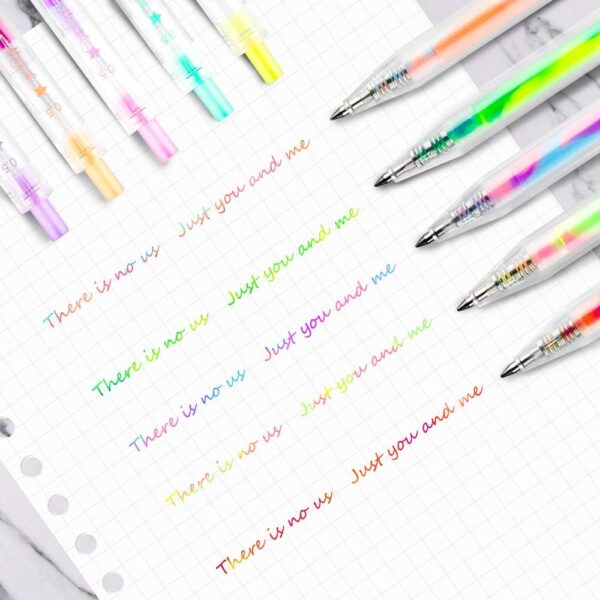 0.5
0.5
0.5
There is no us Just you and me
There is no us Just you and me
There is no us Just you and me
There is no us Just you and me
There is no us Just you and me